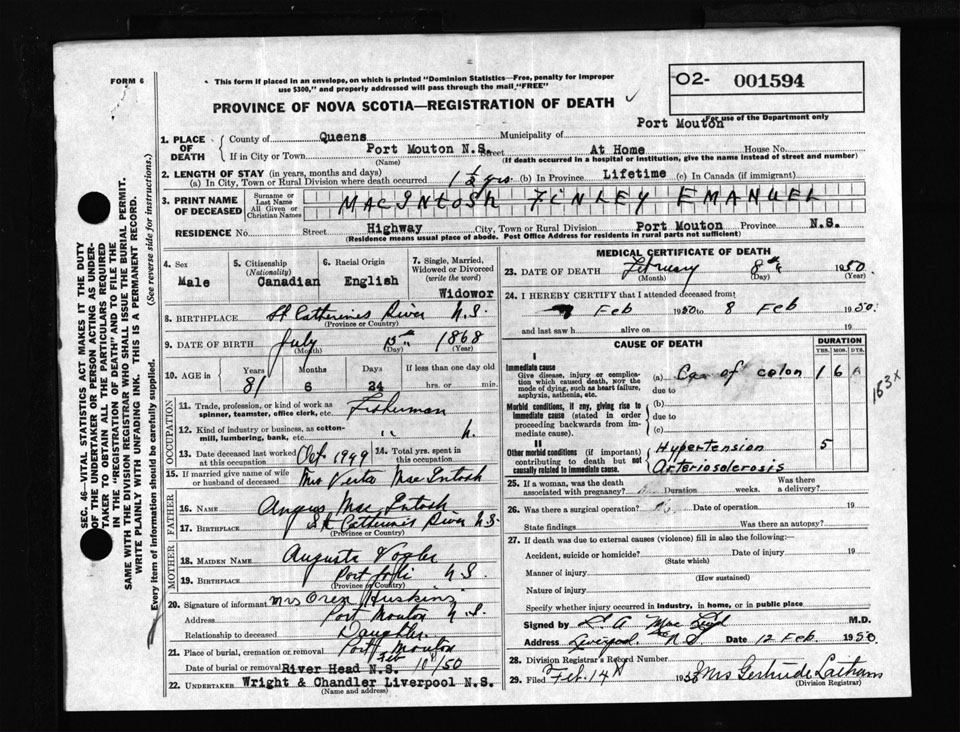 FORM 6
This form if placed in an envelope, on which is printed "Dominion Statistics—Free, penalty for improper
use $300," and properly addressed will pass through the mail "FREE"
O2- 001594
For use of the Department only
PROVINCE OF NOVA SCOTIA—REGISTRATION OF DEATH
SEC. 46—VITAL STATISTICS ACT MAKES IT THE DUTY
OF THE UNDERTAKER OR PERSON ACTING AS UNDER-
TAKER TO OBTAIN ALL THE PARTICULARS REQUIRED
IN THE "REGISTRATION OF DEATH" AND TO FILE THE
SAME WITH THE DIVISION REGISTRAR WHO SHALL ISSUE THE BURIAL PERMIT.
WRITE PLAINLY WITH UNFADING INK. THIS IS A PERMANENT RECORD.
Every item of information should be carefully supplied. (See reverse side for instructions.)
1. PLACE OF DEATH
County of Queens Municipality of Port Mouton
If in City or Town Port Mouton N.S. Street At Home House No.
(Name) (If death occurred in a hospital or institution, give the name instead of street and number)
2. LENGTH OF STAY (in years, months and days)
(a) In City, Town or Rural Division where death occurred 1½ yrs. (b) In Province Lifetime (c) In Canada (if immigrant)
3. PRINT NAME OF DECEASED
Surname or Last Name
All Given or Christian Names
MACINTOSH FINLEY EMANUEL
RESIDENCE No. Street Highway City, Town or Rural Division Port Mouton Province N.S.
(Residence means usual place of abode. Post Office Address for residents in rural parts not sufficient)
4. Sex
Male
5. Citizenship
(Nationality)
Canadian
6. Racial Origin
English
7. Single, Married,
Widowed or Divorced
(write the word)
Widowor
8. BIRTHPLACE St Catherines River N.S.
(Province or Country)
9. DATE OF BIRTH July 15th 1868
(Month) (Day) (Year)
10. AGE in Years Months Days If less than one day old
81 6 24 hrs. or min.
OCCUPATION
11. Trade, profession, or kind of work as
spinner, teamster, office clerk, etc. Fisherman
12. Kind of industry or business, as cotton-
mill, lumbering, bank, etc. " "
13. Date deceased last worked
at this occupation Oct 1949
14. Total yrs. spent in
this occupation
15. If married give name of wife
or husband of deceased Mrs Verta MacIntosh
FATHER
16. NAME Angus MacIntosh
17. BIRTHPLACE St Catherines River N.S.
(Province or Country)
MOTHER
18. MAIDEN NAME Augusta Vogler
19. BIRTHPLACE Port Joli N.S.
(Province or Country)
20. Signature of informant Mrs Oren Huskins
Address Port Mouton N.S.
Relationship to deceased Daughter
21. Place of burial, cremation or removal Port Mouton
Date of burial or removal River Head N.S. Feb 10/50
22. UNDERTAKER Wright & Chandler Liverpool N.S.
(Name and address)
MEDICAL CERTIFICATE OF DEATH
23. DATE OF DEATH February 8th 1950
(Month) (Day) (Year)
24. I HEREBY CERTIFY that I attended deceased from
Feb 1950 to 8 Feb 1950.
and last saw h alive on 19
CAUSE OF DEATH
DURATION
YRS. MOS. DYS.
I
Immediate cause
Give disease, injury or compli-
cation which caused death, NOT the
mode of dying, such as heart failure,
asphyxia, asthenia, etc.
(a) Ca of colon 1 6
due to
Morbid conditions, if any, giving rise to
immediate cause (stated in order
proceeding backwards from im-
mediate cause).
(b)
due to
(c)
II
Other morbid conditions (if important)
contributing to death but not
causally related to immediate cause.
Hypertension 5
Arteriosclerosis
163x
25. If a woman, was the death
associated with pregnancy? Duration weeks. Was there
a delivery?
26. Was there a surgical operation? Date of operation 19
State findings Was there an autopsy?
27. If death was due to external causes (violence) fill in also the following:
Accident, suicide or homicide? Date of injury 19
(State which)
Manner of injury
(How sustained)
Nature of injury
Specify whether injury occurred in industry, in home, or in public place
Signed by M.D.
Address Liverpool N.S. Date 12 Feb. 1950
28. Division Registrar's Record Number
29. Filed Feb. 14th 1950 Mrs Gertrude Leitham
(Division Registrar)